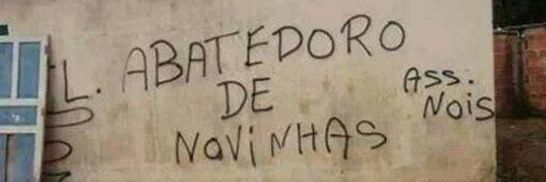 L. ABATEDORO
DE
NOVINHAS
ASS.
NOIS